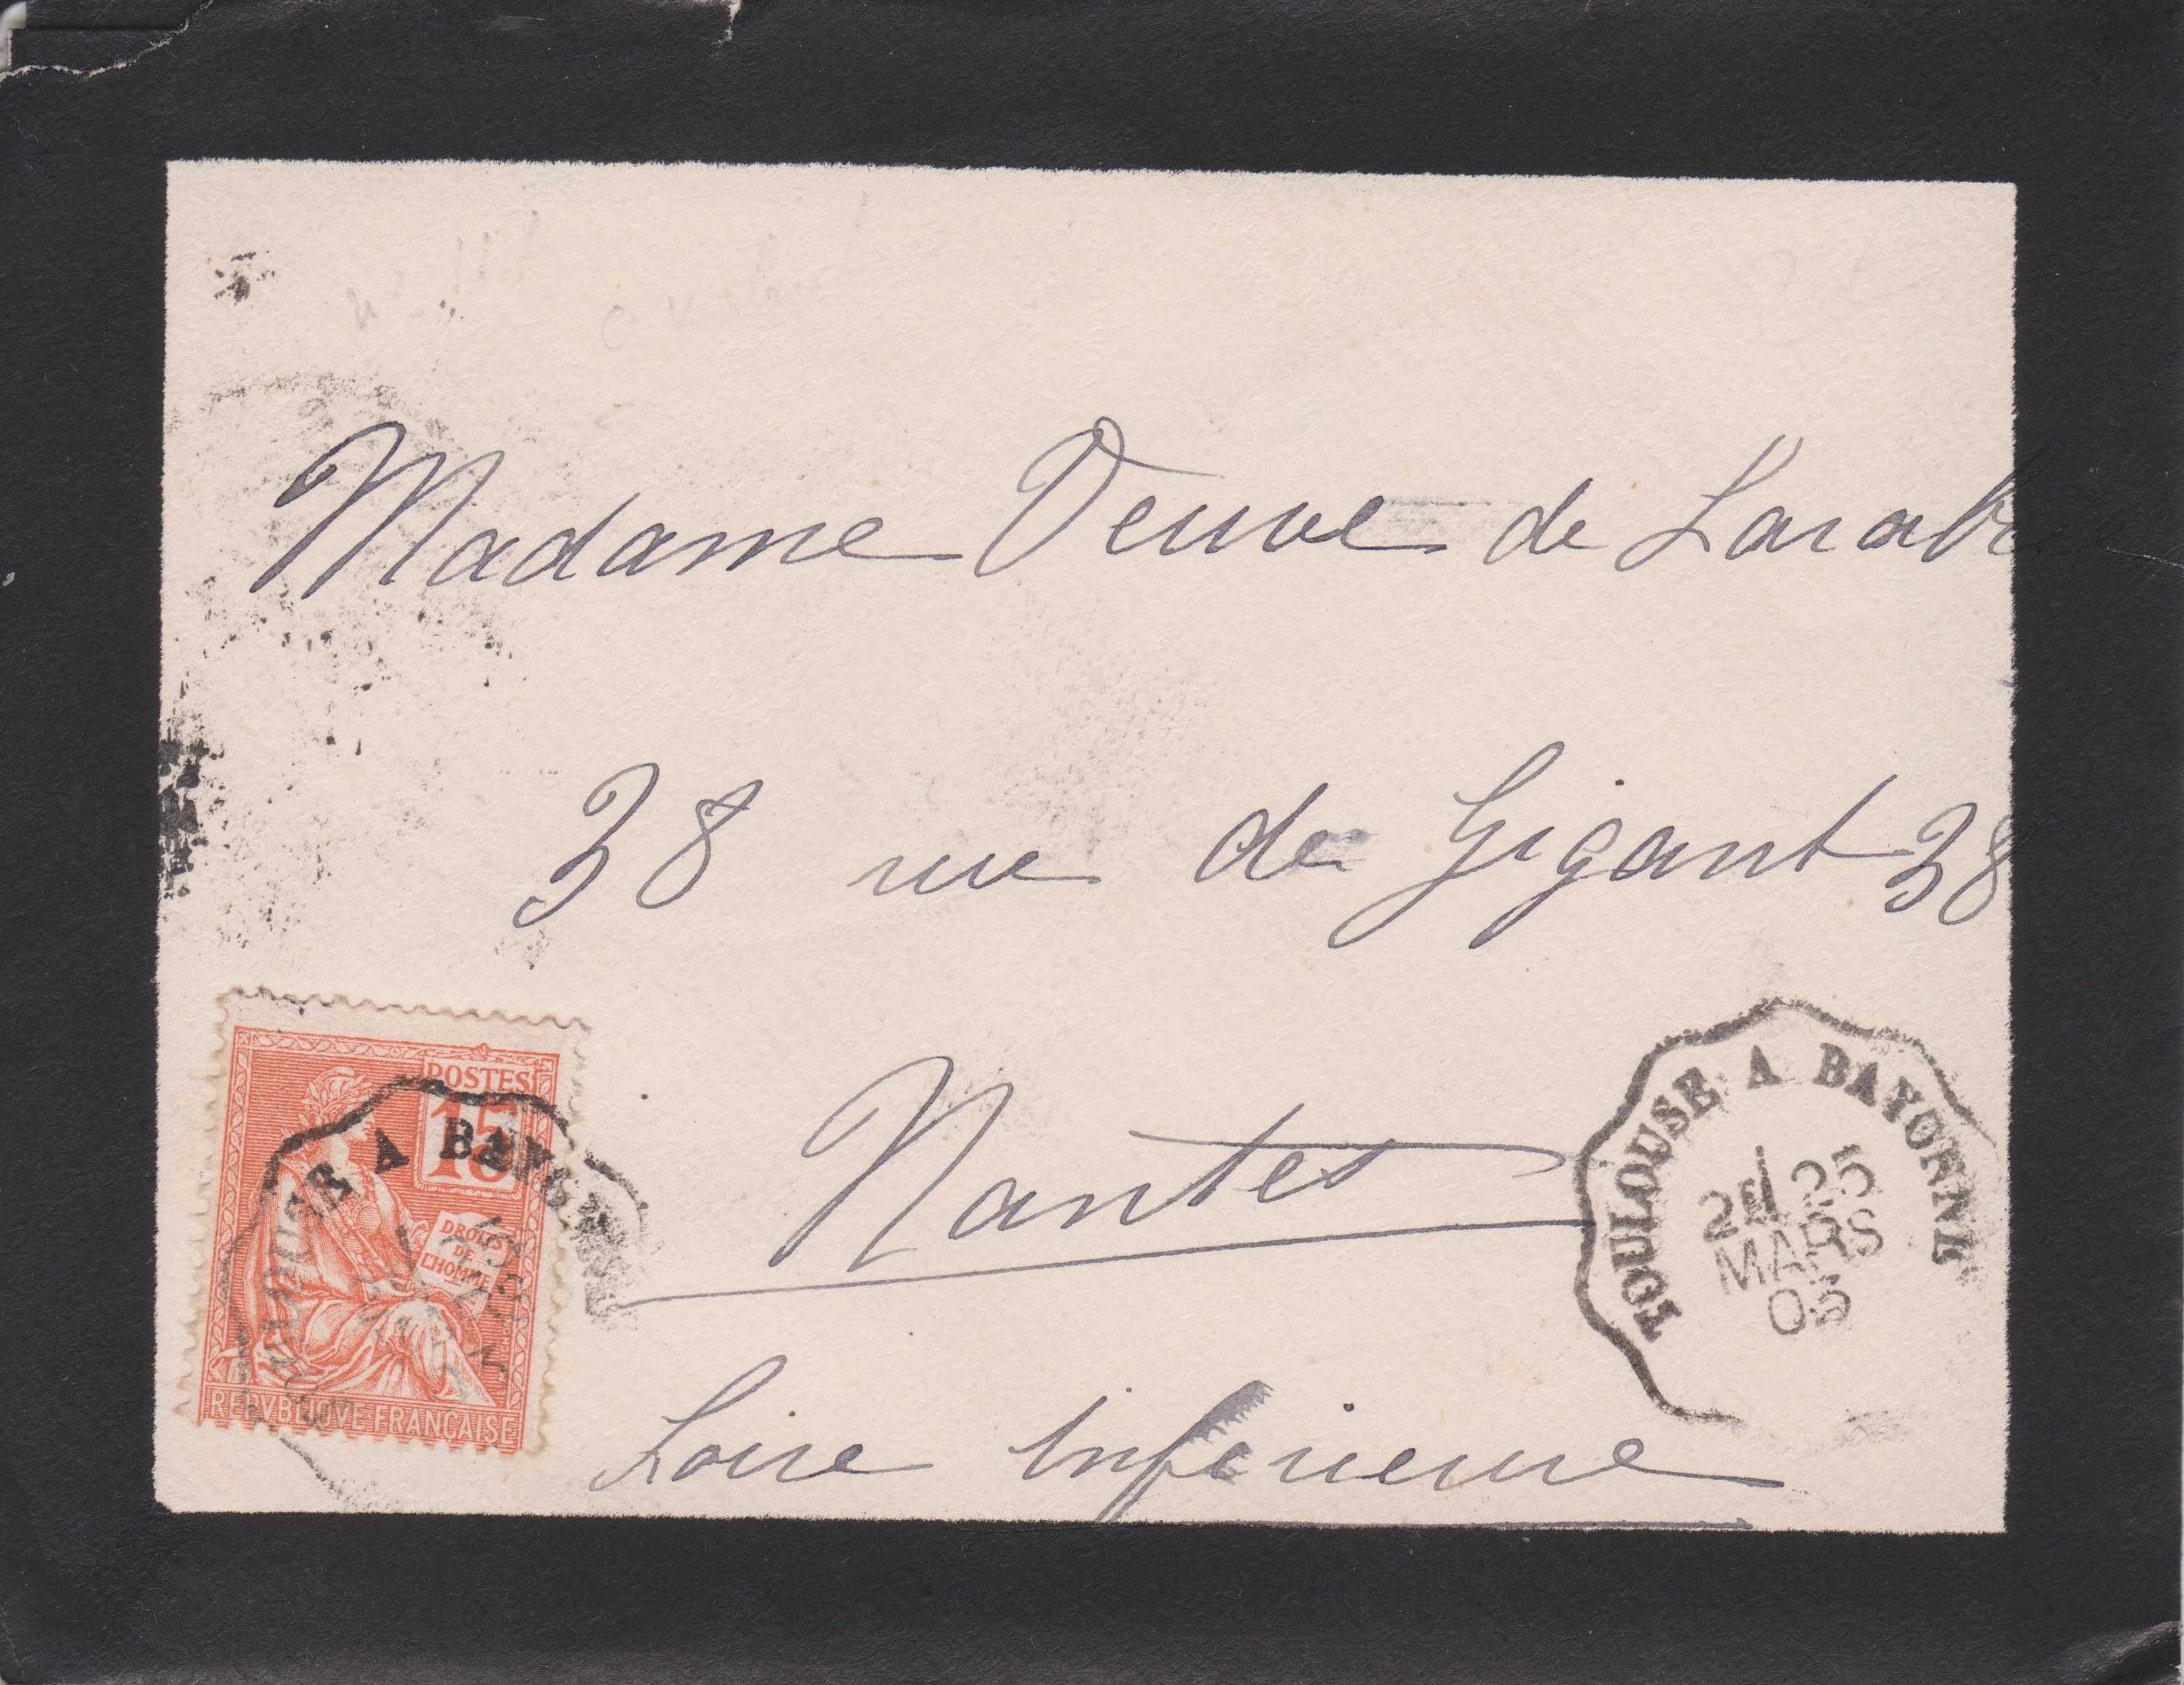 Madame Veuve de Larab
38 rue de Gigant 38
Nantes
Loire Inférieure
POSTES
15
DROITS
DE
L'HOMME
REPVBLIQVE FRANÇAISE
TOULOUSE A BAYONNE
TOULOUSE A BAYONNE
25
MARS
05